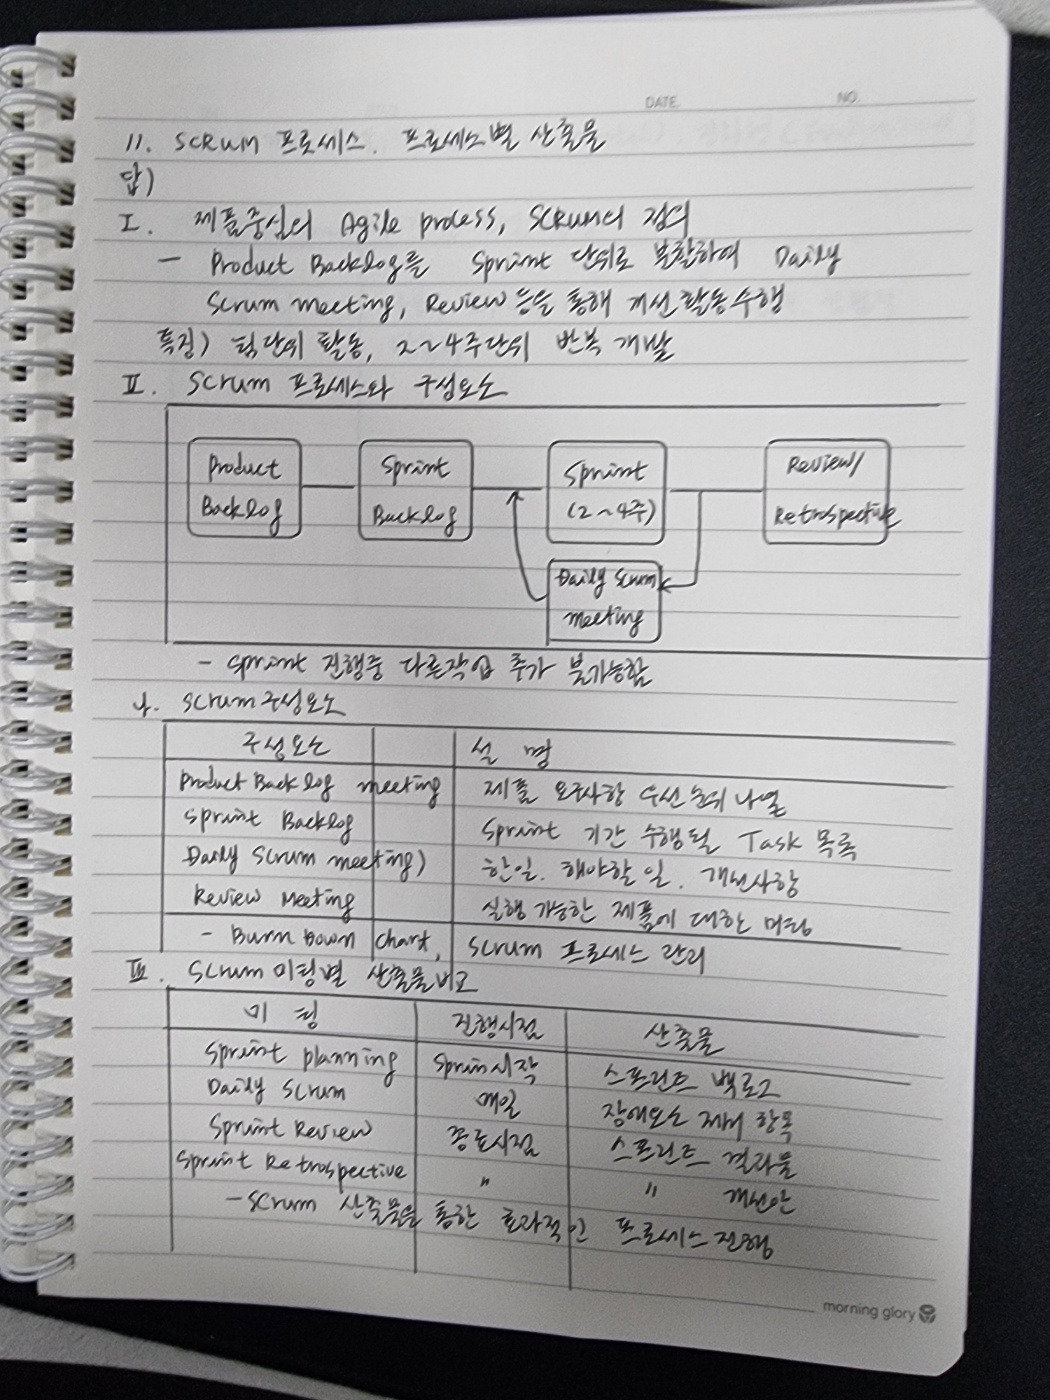 DATE. NO.
11. SCRUM 프로세스. 프로세스별 산출물
답)
I. 제품중심의 Agile process, SCRUM의 정의
- Product Backlog를 Sprint 단위로 분할하여 Daily
Scrum meeting, Review 등을 통해 개선활동수행
특징) 팀단위 활동, 2~4주단위 반복 개발
II. Scrum 프로세스와 구성요소
Product Backlog
Sprint Backlog
Sprint (2~4주)
Review/ Retrospective
Daily Scrum meeting
- sprint 진행중 다른작업 추가 불가능함
나. scrum구성요소
구성요소 설 명
Product Back log meeting 제품 요구사항 우선순위 나열
Sprint Backlog Sprint 기간 수행될 Task 목록
Daily Scrum meeting) 한일. 해야할 일. 개선사항
Review Meeting 실행 가능한 제품에 대한 미팅
- Burn Down chart, Scrum 프로세스 관리
III. Scrum 미팅별 산출물비교
미 팅 진행시점 산출물
Sprint planning Sprin시작 스프린트 백로그
Daily Scrum 매일 장애요소 제거 항목
Sprint Review 종료시점 스프린트 결과물
Sprint Retrospective " " 개선안
- Scrum 산출물을 통한 효과적인 프로세스 진행
morning glory